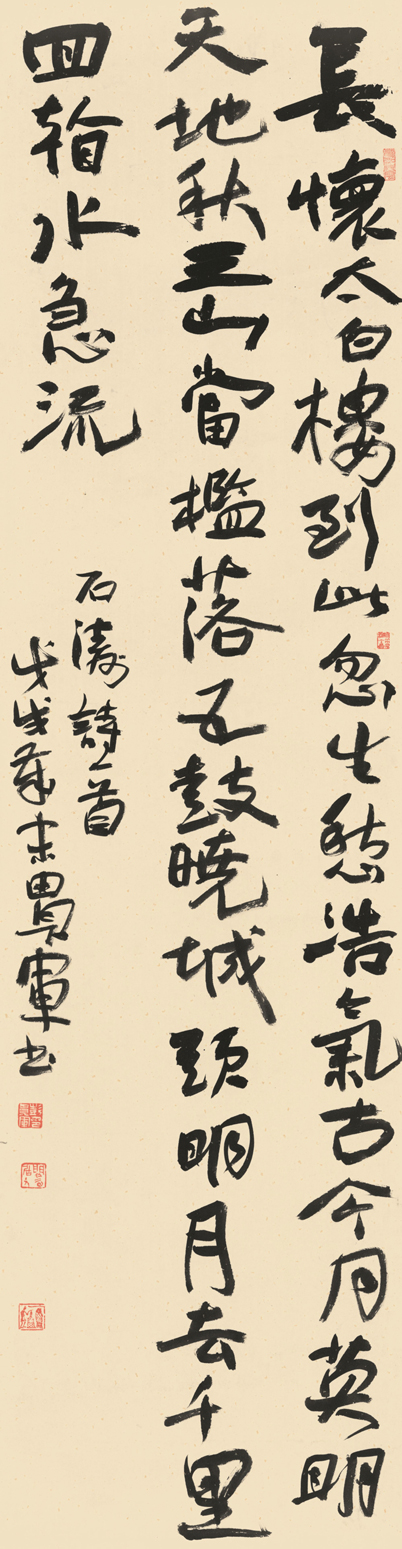 長懷太白樓到此忽生愁浩氣古今月英明
天地秋三山當檻落五鼓曉城頭明月去千里
水急流
石濤詩一首
戊戌 軍書